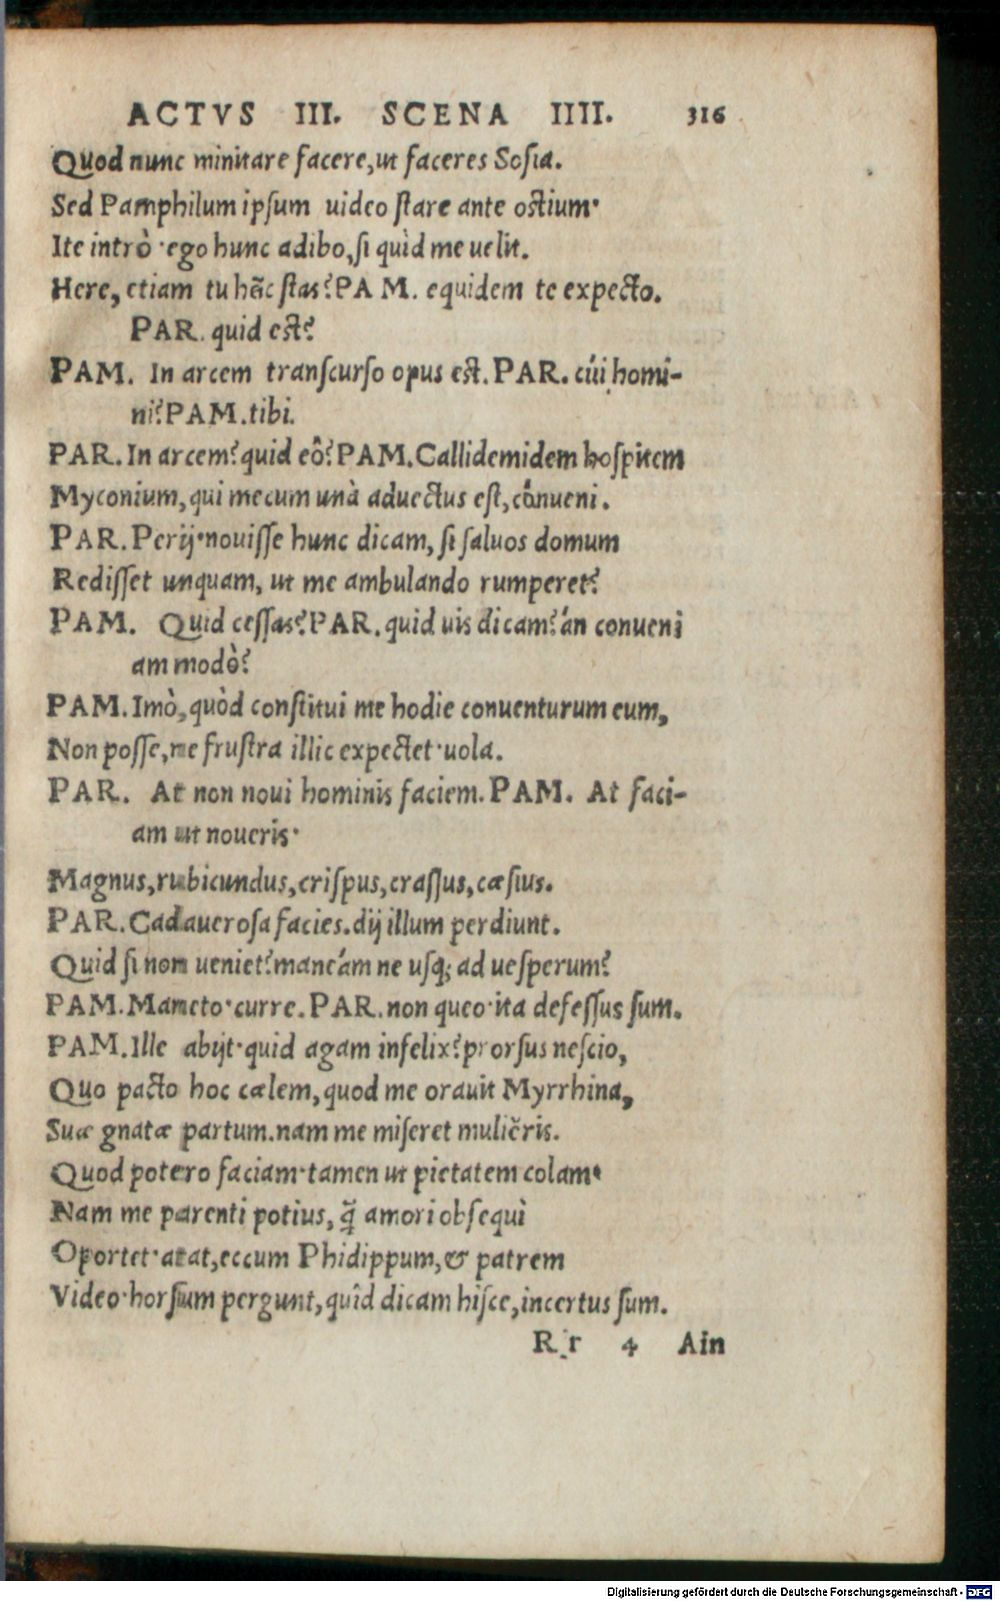 ACTVS III. SCENA IIII. 316
Quod nunc minitare facere, ut faceres Sosia.
Sed Pamphilum ipsum uideo stare ante ostium·
Ite intrò·ego hunc adibo, si quid me uelit.
Here, etiam tu hãc stas? PAM. equidem te expecto.
PAR. quid est?
PAM. In arcem transcurso opus est. PAR. cúi homi-
ni? PAM. tibi.
PAR. In arcem? quid eò? PAM. Callidemidem hospitem
Myconium, qui mecum unà aduectus est, cõnueni.
PAR. Perij·nouisse hunc dicam, si saluos domum
Redisset unquam, ut me ambulando rumperet?
PAM. Quid cessas? PAR. quid uis dicam? án conueni
am modò?
PAM. Imò, quòd constitui me hodie conuenturum eum,
Non posse, ne frustra illic expectet·uola.
PAR. At non noui hominis faciem. PAM. At faci-
am ut noueris·
Magnus, rubicundus, crispus, crassus, cæsius.
PAR. Cadauerosa facies. dij illum perdiunt.
Quid si non ueniet? maneám ne usq; ad uesperum?
PAM. Maneto·curre. PAR. non queo·ita defessus sum.
PAM. Ille abijt·quid agam infelix? prorsus nescio,
Quo pacto hoc cælem, quod me orauit Myrrhina,
Suæ gnatæ partum. nam me miseret muliẽris.
Quod potero faciam·tamen ut pietatem colam·
Nam me parenti potius, q̃ amori obsequi
Oportet·atat, eccum Phidippum, & patrem
Video·horsum pergunt, quid dicam hisce, incertus sum.
Rr 4 Ain
Digitalisierung gefördert durch die Deutsche Forschungsgemeinschaft - DFG